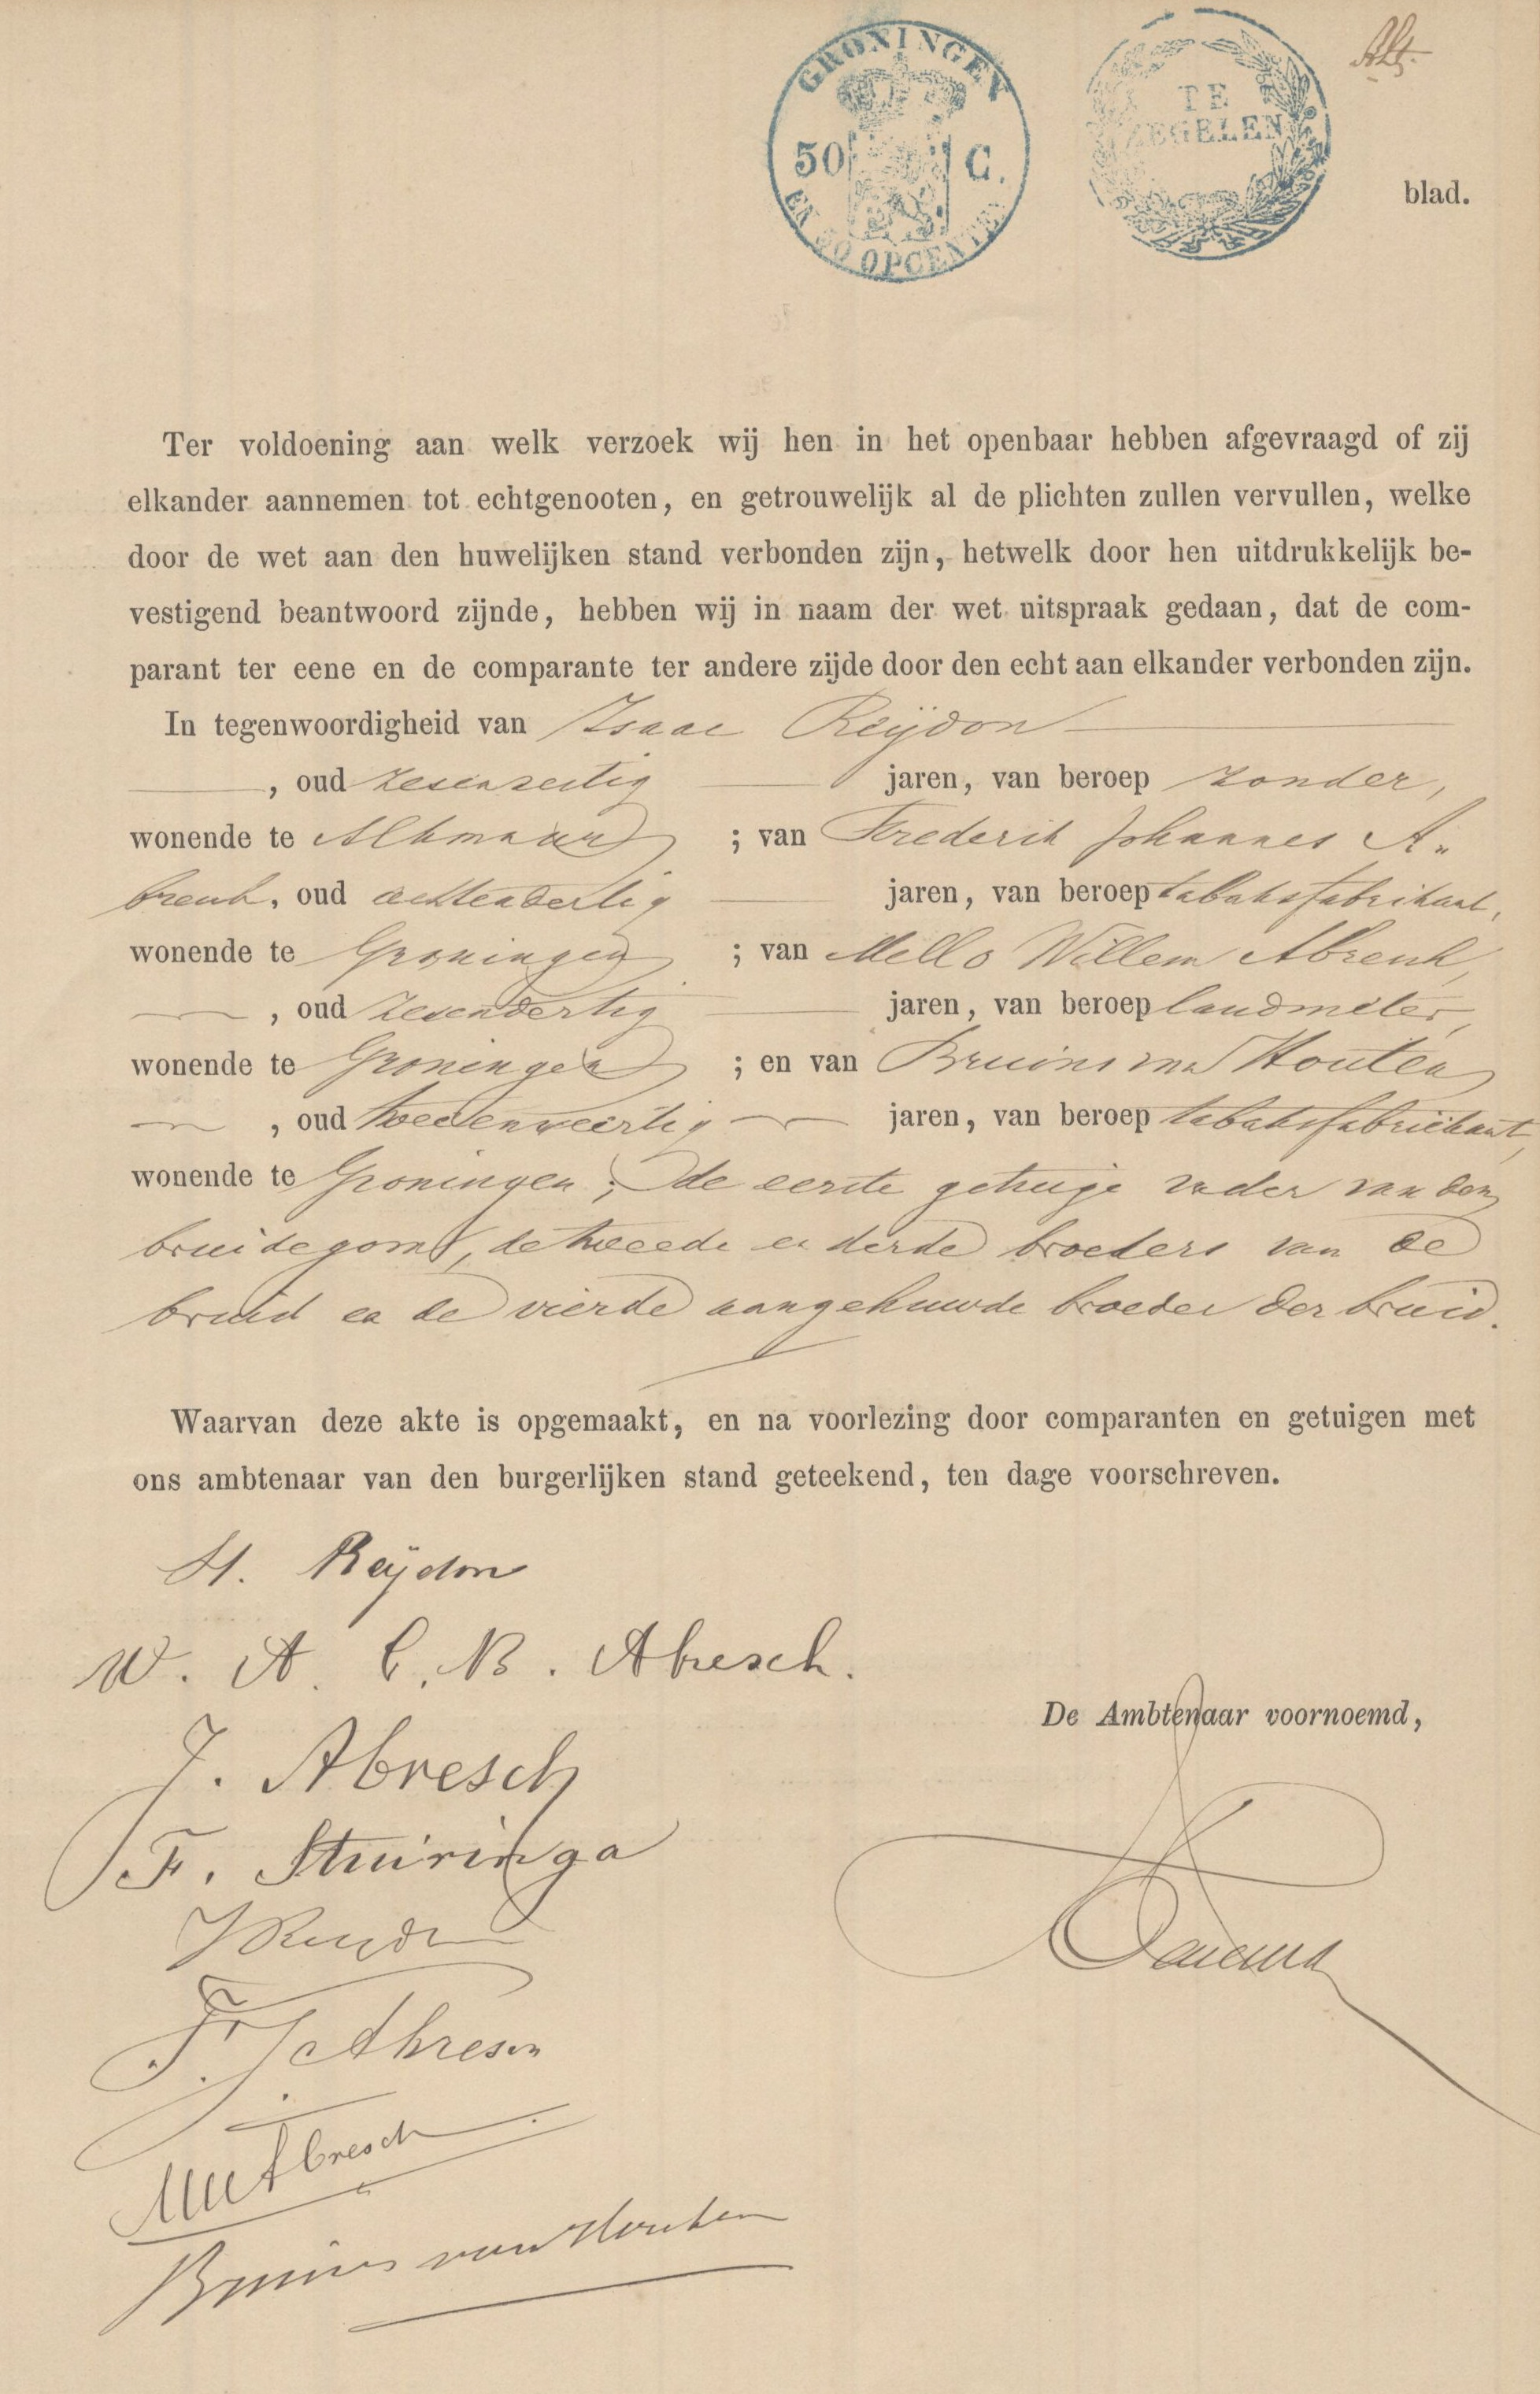 GRONINGEN
50 C.
EN 50 OPCENTEN
TE
ZEGELEN
blad.
Ter voldoening aan welk verzoek wij hen in het openbaar hebben afgevraagd of zij
elkander aannemen tot echtgenooten, en getrouwelijk al de plichten zullen vervullen, welke
door de wet aan den huwelijken stand verbonden zijn, hetwelk door hen uitdrukkelijk be-
vestigend beantwoord zijnde, hebben wij in naam der wet uitspraak gedaan, dat de com-
parant ter eene en de comparante ter andere zijde door den echt aan elkander verbonden zijn.
In tegenwoordigheid van Isaac Reijdon
, oud zesenzestig jaren, van beroep zonder,
wonende te Alkmaar ; van Frederik Johannes A-
bresch, oud achtendertig jaren, van beroep tabaksfabrikant,
wonende te Groningen ; van Mello Willem Abresch,
, oud zesendertig jaren, van beroep landmeter,
wonende te Groningen ; en van Bruins van Houten
, oud tweeenveertig jaren, van beroep tabaksfabriekant,
wonende te Groningen; de eerste getuige vader van den
bruidegom, de tweede en derde broeders van de
bruid en de vierde aangehuwde broeder der bruid.
Waarvan deze akte is opgemaakt, en na voorlezing door comparanten en getuigen met
ons ambtenaar van den burgerlijken stand geteekend, ten dage voorschreven.
H. Reijdon
W. A. C. B. Abresch.
De Ambtenaar voornoemd,
J. Abresch
F. Stuiringa
J Reijdon
F. J. Abresch
MW Abresch
Bruins van Houten